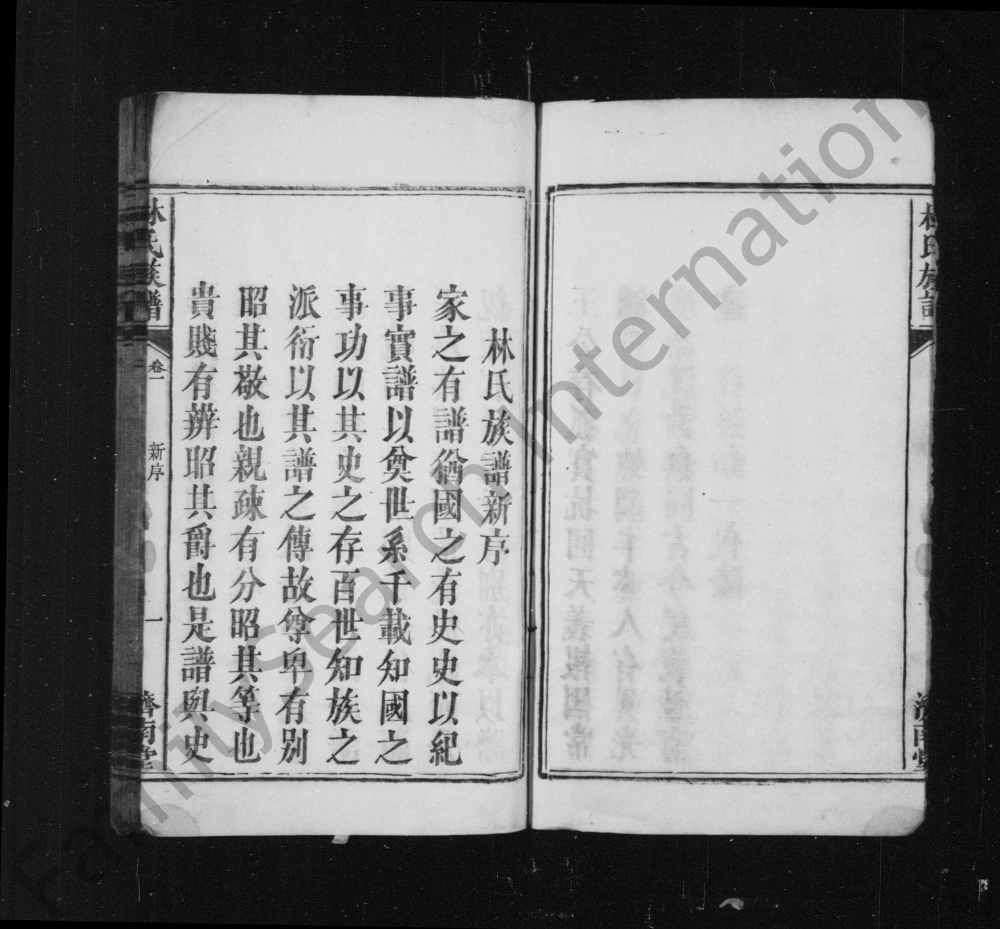 林氏族譜新序
家之有譜猶國之有史史以紀
事實譜以奠世系千載知國之
事功以其史之存百世知族之
派衍以其譜之傳故尊卑有别
昭其敬也親疎有分昭其等也
貴賤有辨昭其爵也是譜與史
林氏族譜 卷一 新序 一 濟南堂
FamilySearch International